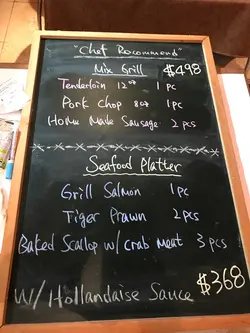 "Chef Recommend"
Mix Grill $498
Tenderloin 12oz 1pc
Pork Chop 8oz 1pc
Home Made Sausage 2pcs
Seafood Platter
Grill Salmon 1pc
Tiger Prawn 2pcs
Baked Scallop w/ crab meat 3pcs
$368
W/ Hollandaise Sauce